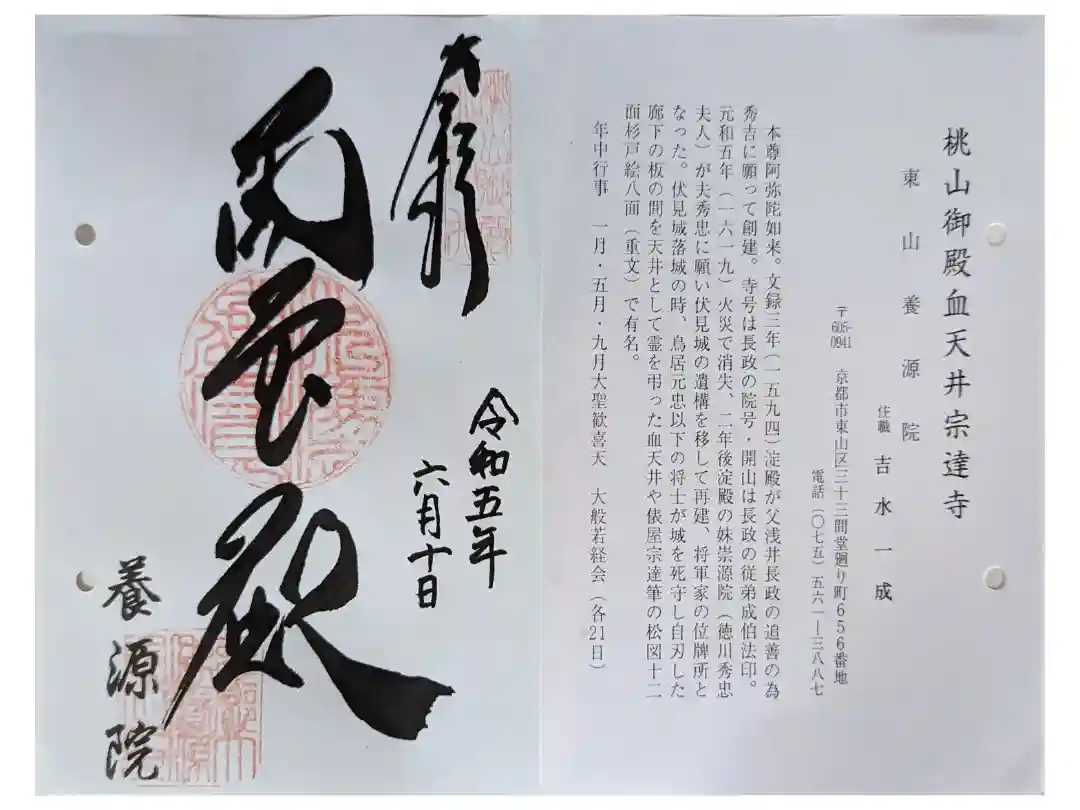 桃山御殿血天井宗達寺
東山養源院
住職 吉水一成
〒605-0941 京都市東山区三十三間堂廻り町656番地
電話（〇七五）五六一―三八八七
本尊阿弥陀如来。文録三年（一五九四）淀殿が父浅井長政の追善の為
秀吉に願って創建。寺号は長政の院号・開山は長政の従弟成伯法印。
元和五年（一六一九）火災で消失、二年後淀殿の妹崇源院（徳川秀忠
夫人）が夫秀忠に願い伏見城の遺構を移して再建、将軍家の位牌所と
なった。伏見城落城の時、鳥居元忠以下の将士が城を死守し自刃した
廊下の板の間を天井として霊を弔った血天井や俵屋宗達筆の松図十二
面杉戸絵八面（重文）で有名。
年中行事 一月・五月・九月大聖歓喜天 大般若経会（各21日）
奉拝
令和五年
六月十日
養源院